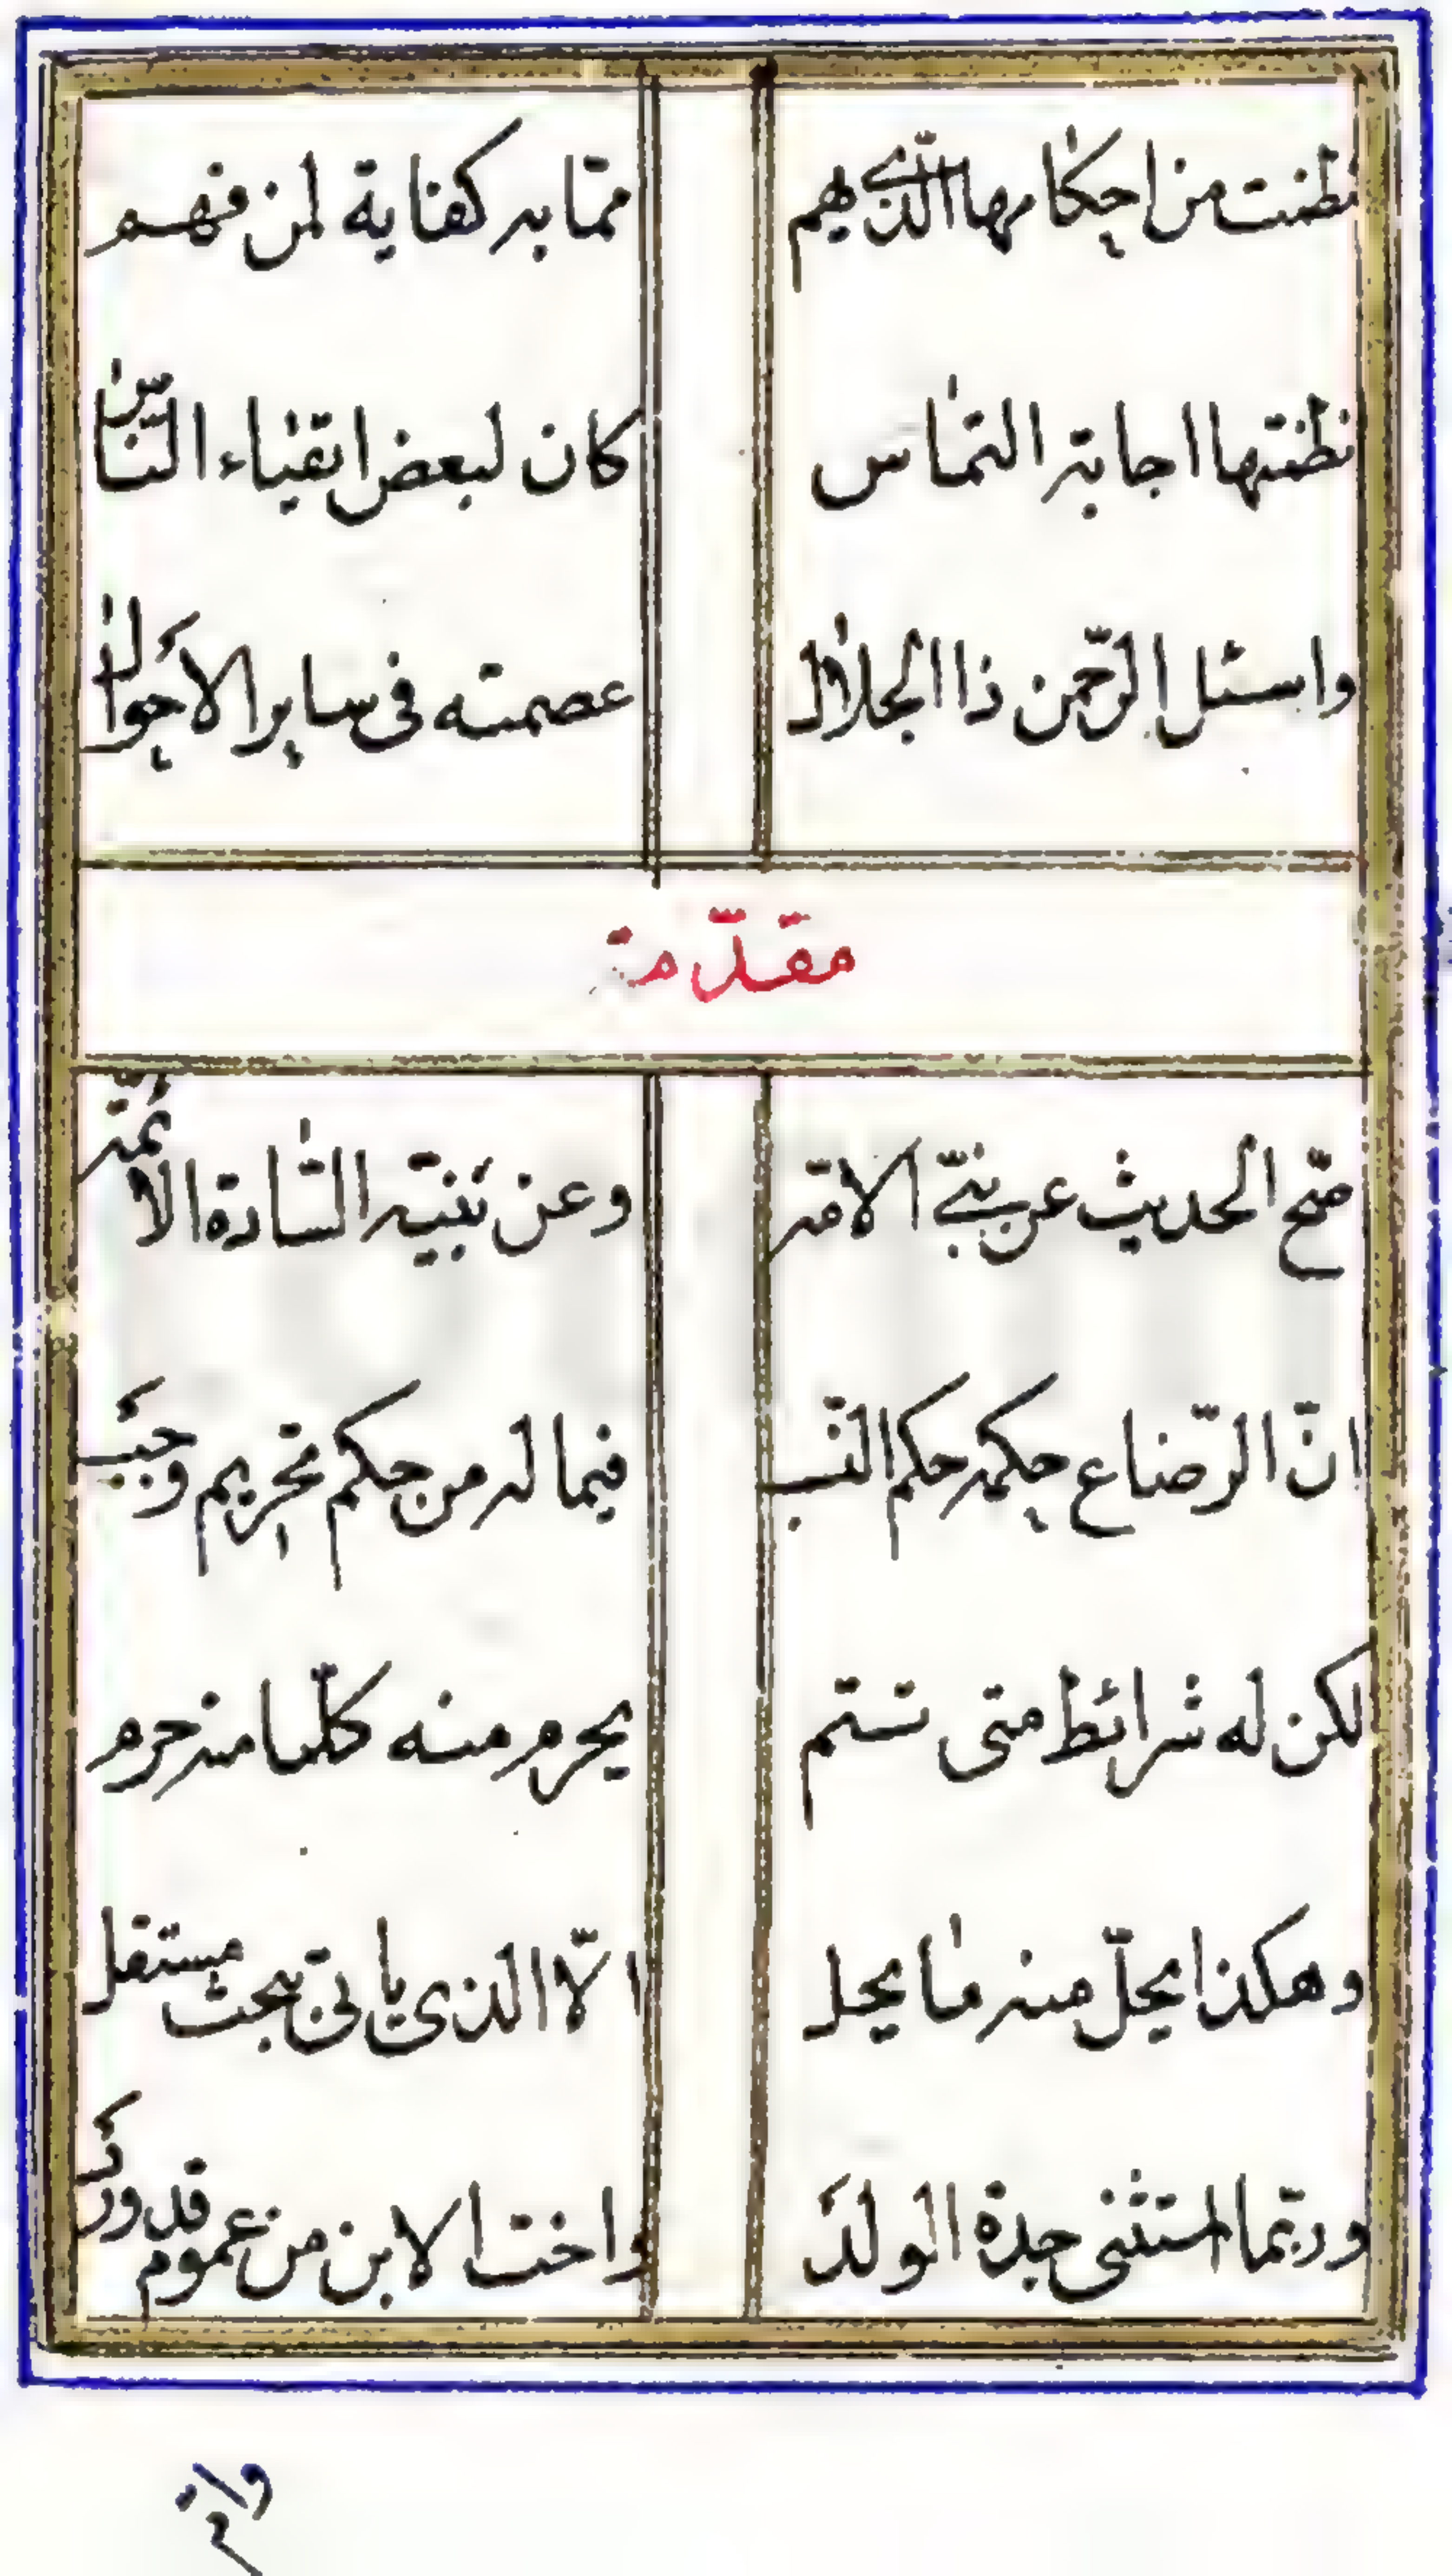 نظمت من احكامها الذي هم مما به كفاية لمن فهم
نظمتها اجابة التماس كان لبعض اتقياء الناس
واسئل الرحمن ذا الجلال عصمته فى ساير الاحوال
مقدّمة
صحّ الحديث عن نبىّ الامّة وعن بنيه السّادة الائمّة
انّ الرّضاع حكمه حكم النّسب فيما له من حكم تحريم وجب
لكن له شرائط متى تستتم يحرم منه كلّما منه حرم
وهكذا يحلّ منه ما يحل الّا الذى ياتى ببحث مستقل
وربّما استثنى جدة الولد واخت الابن من عموم قد ورد